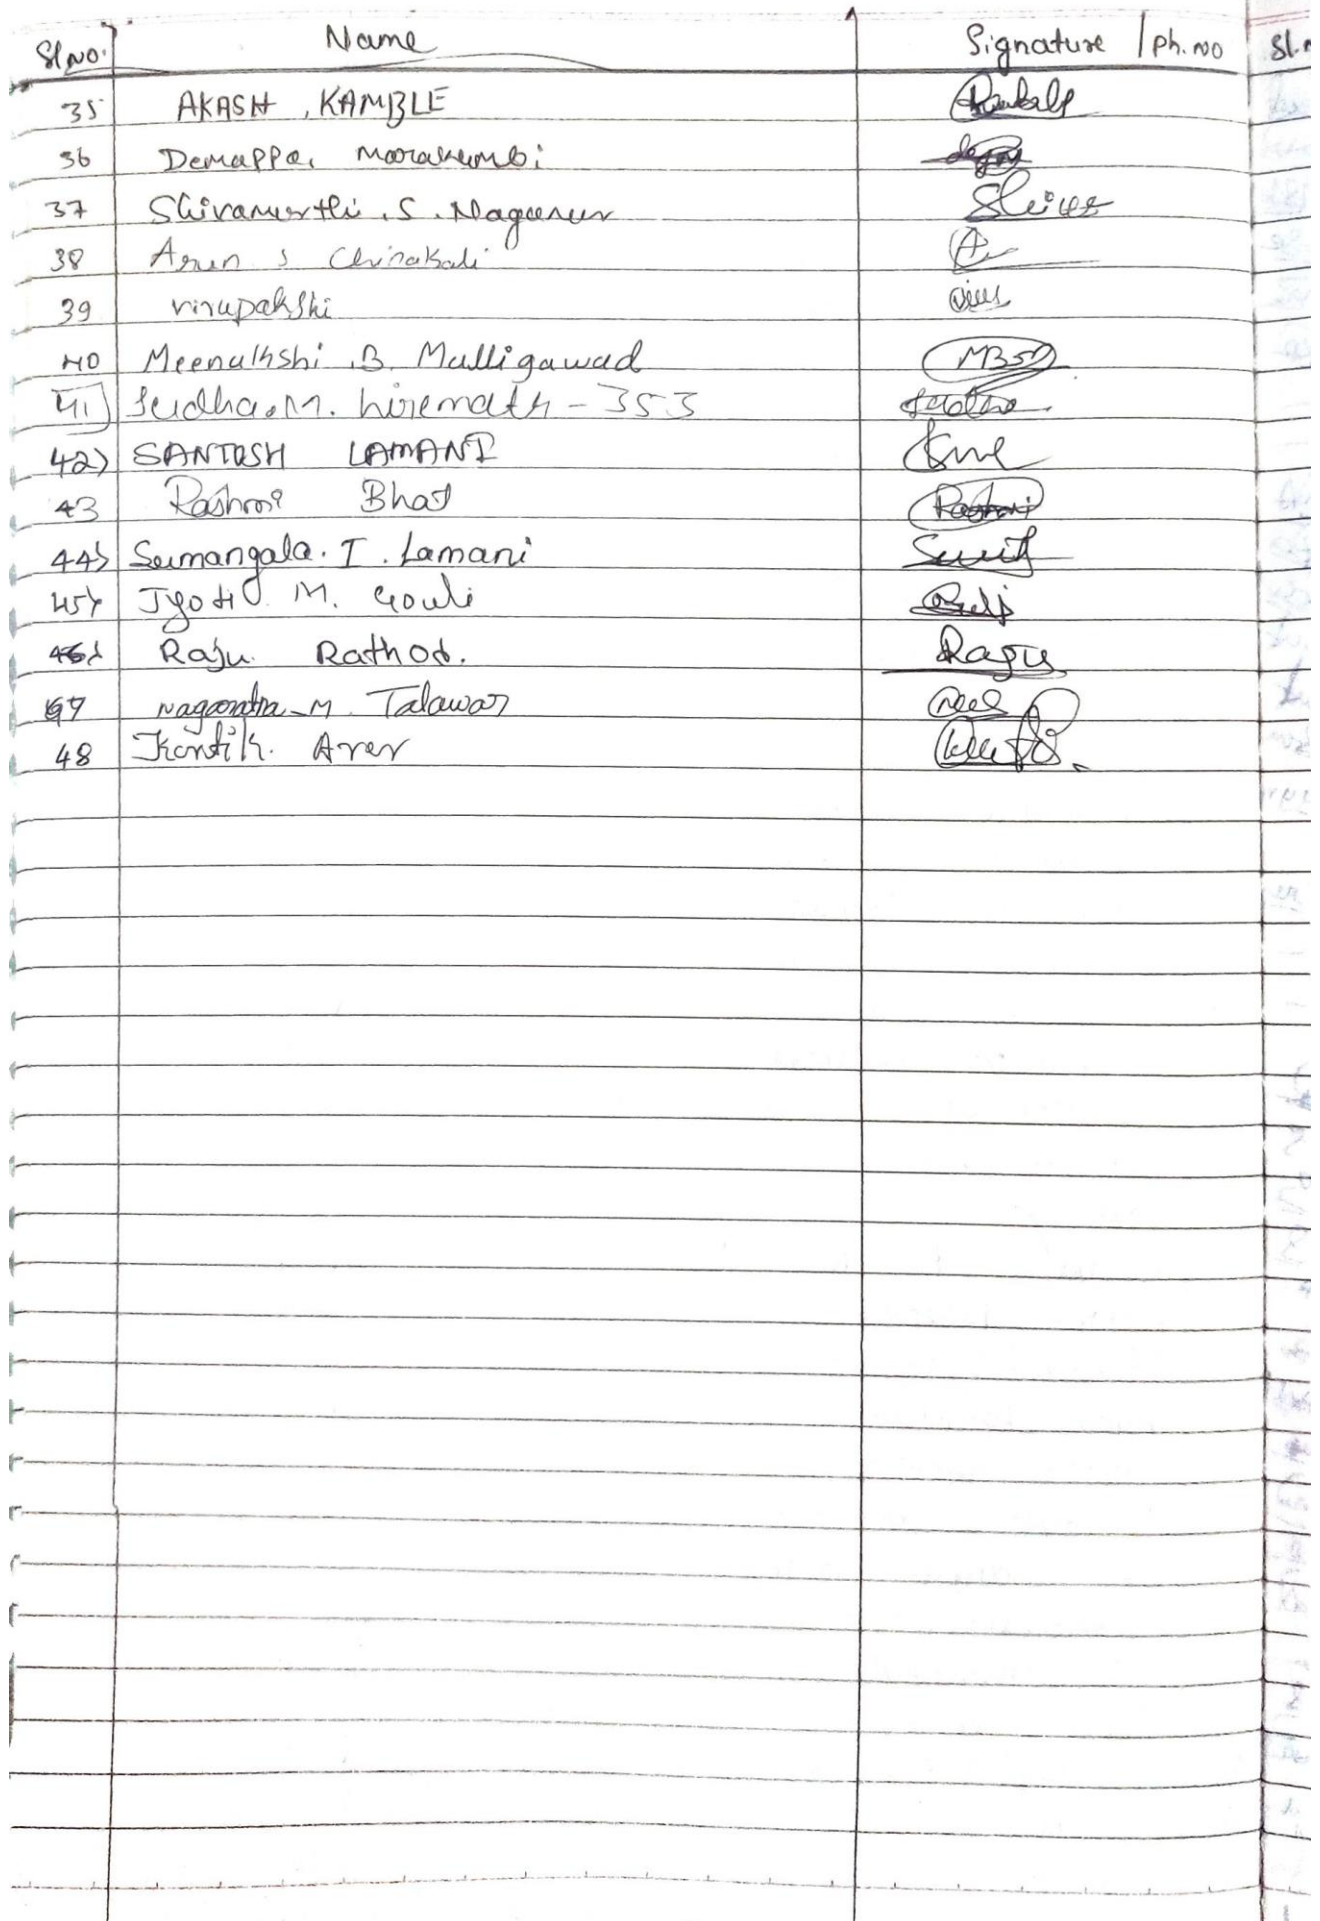 Sl.No. Name Signature / Ph.no Sl.n
35 AKASH .KAMBLE
36 Demappa. Marakumbi
37 Shivamurthi .S. Naganur Shiva
38 Arun S Chinakali A
39 virupakshi viru
40 Meenakshi .B. Mulligawad
41 Sudha.M. hiremath - 353 Sudha
42) SANTOSH LAMANI
43 Rashmi Bhat Rashmi
44) Sumangala. I. Lamani
45) Jyoti M. Gouli
46) Raju Rathod. Raju
47 Nagaratna-M Talawar
48 Kartik. Arer